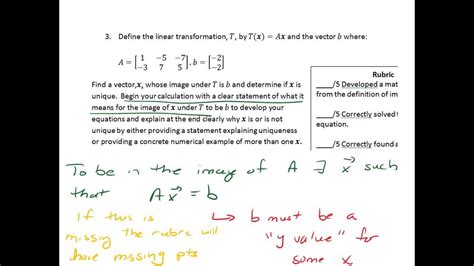 3. Define the linear transformation, T, by T(x) = Ax and the vector b where:
A = [1 -5 -7; -3 7 5], b = [-2; -2]
Find a vector, x, whose image under T is b and determine if x is
unique. Begin your calculation with a clear statement of what it
means for the image of x under T to be b to develop your
equations and explain at the end clearly why x is or is not
unique by either providing a statement explaining uniqueness
or providing a concrete numerical example of more than one x.
Rubric
____/5 Developed a mat
from the definition of im
____/5 Correctly solved
equation.
____/5 Correctly found a
To be in the image of A ∃ x⃗ such
that Ax⃗ = b
If this is
missing the rubric will
have missing pts
↳ b must be a
"y value" for
some x